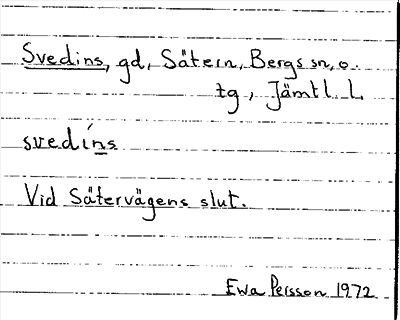 Svedins, gd, Sätern, Bergs sn, o.
tg, Jämtl. L
svedíns
Vid Sätervägens slut.
Ewa Persson 1972